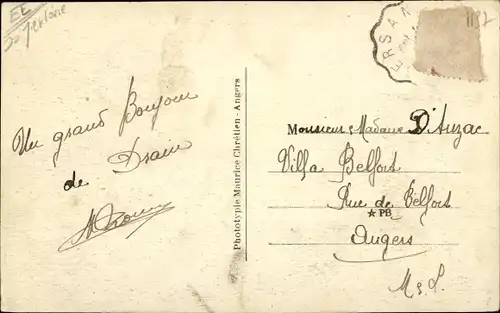 EE
1187
ERSA
Un grand Bonjour
de Drain
Phototypie Maurice Chrétien - Angers
Monsieur, Madame D'Auzac
Villa Belfort
Rue de Belfort
★ PB
Angers
M & L.